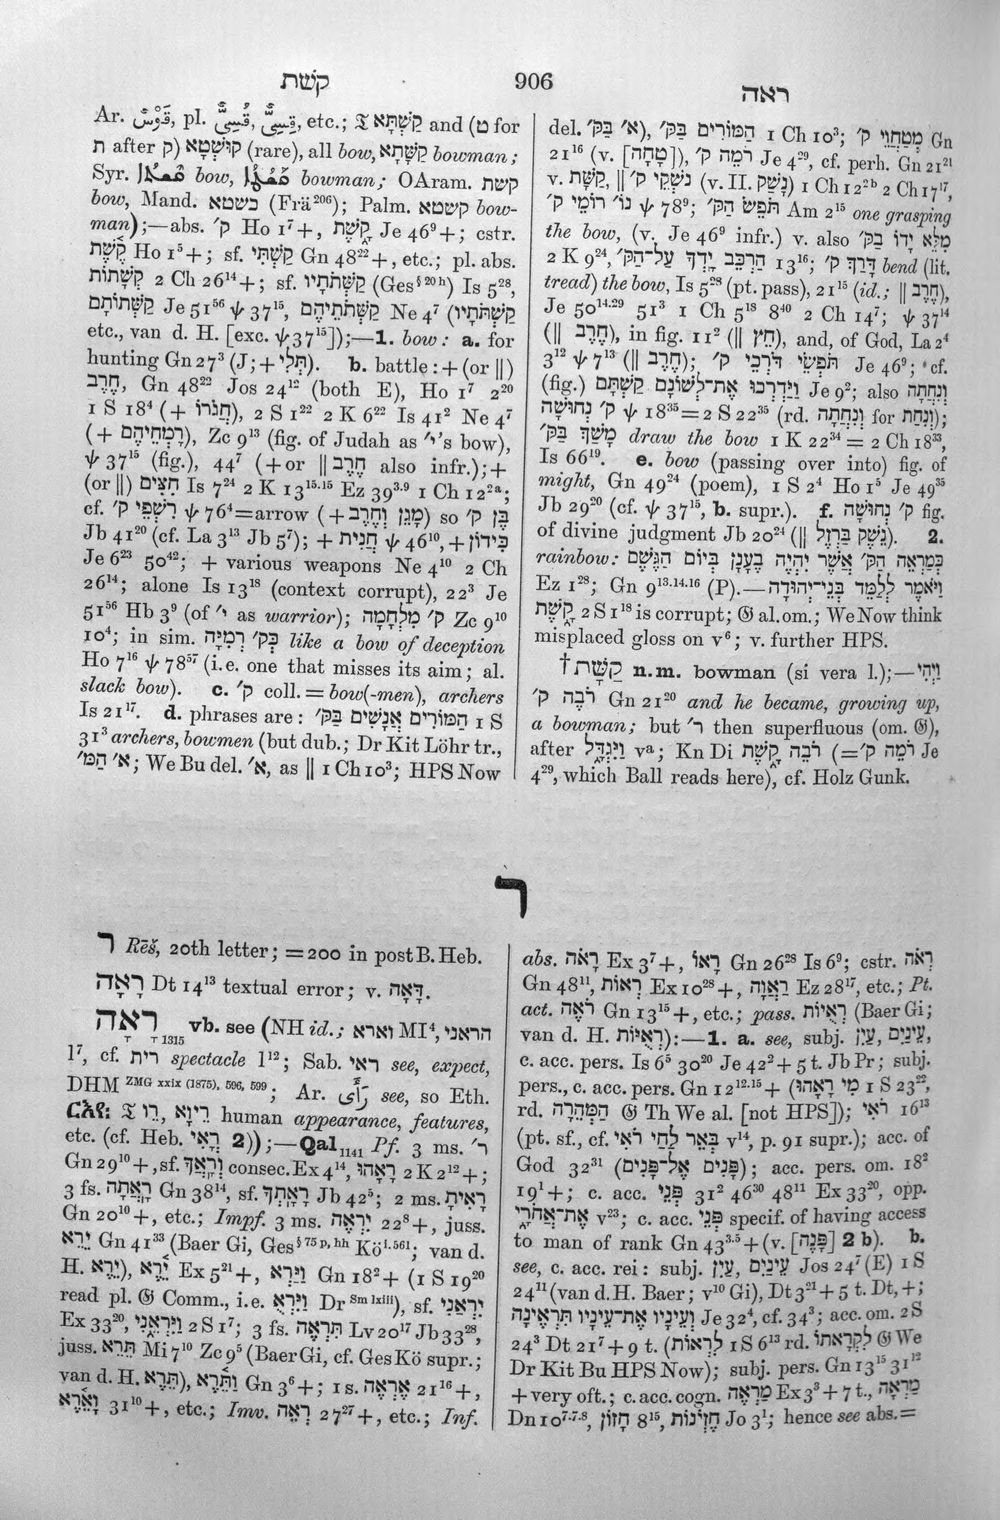 קשׁת
906
ראה
Ar. قَوْسٌ, pl. قُسِىٌّ, قِسِىٌّ, etc.; 𝔗 קַשְׁתָּא and (ט for
ת after ק) קוּשְׁטָא (rare), all bow, קַשָּׁתָא bowman;
Syr. bow, bowman; OAram. קשת
bow, Mand. כשטא (Frä²⁰⁶); Palm. קשטא bow-
man);—abs. ק׳ Ho 1⁷ +, קָ֑שֶׁת Je 46⁹ +; cstr.
קֶ֫שֶׁת Ho 1⁵ +; sf. קַשְׁתִּי Gn 48²² +, etc.; pl. abs.
קְשָׁתוֹת 2 Ch 26¹⁴ +; sf. קַשְּׁתֹתָיו (Ges§20h) Is 5²⁸,
קַשְּׁתוֹתָם Je 51⁵⁶ ψ 37¹⁵, קַשְּׁתֹתֵיהֶם Ne 4⁷ (קַשְׁתֹתָיו
etc., van d. H. [exc. ψ 37¹⁵]);—1. bow: a. for
hunting Gn 27³ (J; + תְּלִי). b. battle: + (or ||)
חֶרֶב, Gn 48²² Jos 24¹² (both E), Ho 1⁷ 2²⁰
1 S 18⁴ (+ חֲגֹרוֹ), 2 S 1²² 2 K 6²² Is 41² Ne 4⁷
(+ רָמְחֵיהֶם), Zc 9¹³ (fig. of Judah as י׳'s bow),
ψ 37¹⁵ (fig.), 44⁷ (+ or || חֶרֶב also infr.); +
(or ||) חִצִּים Is 7²⁴ 2 K 13¹⁵·¹⁵ Ez 39³·⁹ 1 Ch 12²ᵃ;
cf. רִשְׁפֵי ק׳ ψ 76⁴ = arrow (+ מָגֵן וְחֶרֶב) so בֶּן ק׳
Jb 41²⁰ (cf. La 3¹³ Jb 5⁷); + חֲנִית ψ 46¹⁰, + כִּידוֹן
Je 6²³ 50⁴²; + various weapons Ne 4¹⁰ 2 Ch
26¹⁴; alone Is 13¹⁸ (context corrupt), 22³ Je
51⁵⁶ Hb 3⁹ (of י׳ as warrior); ק׳ מִלְחָמָה Zc 9¹⁰
10⁴; in sim. כְּק׳ רְמִיָּה like a bow of deception
Ho 7¹⁶ ψ 78⁵⁷ (i.e. one that misses its aim; al.
slack bow). c. ק׳ coll. = bow(-men), archers
Is 21¹⁷. d. phrases are: הַמּוֹרִים אֲנָשִׁים בַּקּ׳ 1 S
31³ archers, bowmen (but dub.; Dr Kit Löhr tr.,
א׳ הַמּ׳; We Bu del. א׳, as || 1 Ch 10³; HPS Now
del. א׳ בַּקּ׳), הַמּוֹרִים בַּקּ׳ 1 Ch 10³; מְטַחֲוֵי ק׳ Gn
21¹⁶ (v. [טָחָה]), רֹמֵה ק׳ Je 4²⁹, cf. perh. Gn 21²¹
v. קַשָּׁת, || נֹשְׁקֵי ק׳ (v. II. נָשַׁק) 1 Ch 12²ᵇ 2 Ch 17¹⁷,
נו׳ רוֹמֵי ק׳ ψ 78⁹; תֹּפֵשׂ הַקּ׳ Am 2¹⁵ one grasping
the bow, (v. Je 46⁹ infr.) v. also מִלֵּא יָדוֹ בַקּ׳
2 K 9²⁴, הַרְכֵּב יָדְךָ עַל־הַקּ׳ 13¹⁶; דָּרַךְ ק׳ bend (lit.
tread) the bow, Is 5²⁸ (pt. pass), 21¹⁵ (id.; || חֶרֶב),
Je 50¹⁴·²⁹ 51³ 1 Ch 5¹⁸ 8⁴⁰ 2 Ch 14⁷; ψ 37¹⁴
(|| חֶרֶב), in fig. 11² (|| חֵץ), and, of God, La 2⁴
3¹² ψ 7¹³ (|| חֶרֶב); תֹּפְשֵׂי דֹּרְכֵי ק׳ Je 46⁹; cf.
(fig.) וַיַּדְרְכוּ אֶת־לְשׁוֹנָם קַשְׁתָּם Je 9²; also וְנִחֲתָה
ק׳ נְחוּשָׁה ψ 18³⁵ = 2 S 22³⁵ (rd. וְנִחֲתָה for וְנִחַת);
מָשַׁךְ בַּקּ׳ draw the bow 1 K 22³⁴ = 2 Ch 18³³,
Is 66¹⁹. e. bow (passing over into) fig. of
might, Gn 49²⁴ (poem), 1 S 2⁴ Ho 1⁵ Je 49³⁵
Jb 29²⁰ (cf. ψ 37¹⁵, b. supr.). f. ק׳ נְחוּשָׁה fig.
of divine judgment Jb 20²⁴ (|| נֵשֶׁק בַּרְזֶל). 2.
rainbow: כְּמַרְאֵה הַקּ׳ אֲשֶׁר יִהְיֶה בֶעָנָן בְּיוֹם הַגֶּשֶׁם
Ez 1²⁸; Gn 9¹³·¹⁴·¹⁶ (P).—וַיֹּאמֶר לְלַמֵּד בְּנֵי־יְהוּדָה
קָ֑שֶׁת 2 S 1¹⁸ is corrupt; 𝔊 al. om.; We Now think
misplaced gloss on v⁶; v. further HPS.
† קַשָּׁת n.m. bowman (si vera l.);—וַיְהִי
רֹבֶה ק׳ Gn 21²⁰ and he became, growing up,
a bowman; but ר׳ then superfluous (om. 𝔊),
after וַיִּגְדָּ֑ל vᵃ; Kn Di רֹבֵה קָ֑שֶׁת (= רֹמֵה ק׳ Je
4²⁹, which Ball reads here), cf. Holz Gunk.
ר
ר Rēš, 20th letter; = 200 in postB. Heb.
רָאָה Dt 14¹³ textual error; v. דָּאָה.
רָאָה₁₃₁₅ vb. see (NH id.; וארא MI⁴, הראני
1⁷, cf. רית spectacle l¹²; Sab. ראי see, expect,
DHM ZMG xxix (1875), 596, 599; Ar. رَأَى see, so Eth.
ርእየ; 𝔗 רֵיוָא, רֵו human appearance, features,
etc. (cf. Heb. רֳאִי 2));—Qal₁₁₄₁ Pf. 3 ms. ר׳
Gn 29¹⁰ +, sf. וְרָאֲךָ consec. Ex 4¹⁴, רָאָהוּ 2 K 2¹² +;
3 fs. רָאֲתָה Gn 38¹⁴, sf. רָאָ֑תְךָ Jb 42⁵; 2 ms. רָאִיתָ
Gn 20¹⁰ +, etc.; Impf. 3 ms. יִרְאֶה 22⁸ +, juss.
יֵרֶא Gn 41³³ (Baer Gi, Ges§75p, hh Köi.561; van d.
H. יֵרֶא), יֵ֫רֶא Ex 5²¹ +, וַיַּרְא Gn 18² + (1 S 19²⁰
read pl. 𝔊 Comm., i.e. וַיִּרְאוּ Dr Sm lxiii), sf. יִרְאַנִי
Ex 33²⁰, וַיִּרְאֵ֑נִי 2 S 1⁷; 3 fs. תִּרְאֶה Lv 20¹⁷ Jb 33²⁸,
juss. תֵּרֶא Mi 7¹⁰ Zc 9⁵ (Baer Gi, cf. Ges Kö supr.;
van d. H. תֵּרֶא), וַתֵּ֫רֶא Gn 3⁶ +; 1 s. אֶרְאֶה 21¹⁶ +,
וָאֵ֫רֶא 31¹⁰ +, etc.; Imv. רְאֵה 27²⁷ +, etc.; Inf.
abs. רָאֹה Ex 3⁷ +, רָאוֹ Gn 26²⁸ Is 6⁹; cstr. רְאֹה
Gn 48¹¹, רְאוֹת Ex 10²⁸ +, רַאֲוָה Ez 28¹⁷, etc.; Pt.
act. רֹאֶה Gn 13¹⁵ +, etc.; pass. רְאֻיוֹת (Baer Gi;
van d. H. רְאֻיּוֹת):—1. a. see, subj. עַיִן, עֵינַיִם,
c. acc. pers. Is 6⁵ 30²⁰ Je 42² + 5 t. Jb Pr; subj.
pers., c. acc. pers. Gn 12¹²·¹⁵ + (מִי רָאָהוּ 1 S 23²²,
rd. הַמְּהֵרָה 𝔊 Th We al. [not HPS]); רֹאִי 16¹³
(pt. sf., cf. בְּאֵר לַחַי רֹאִי v¹⁴, p. 91 supr.); acc. of
God 32³¹ (פָּנִים אֶל־פָּנִים); acc. pers. om. 18²
19¹ +; c. acc. פְּנֵי 31² 46³⁰ 48¹¹ Ex 33²⁰, opp.
אֶת־אֲחֹרָ֑י v²³; c. acc. פְּנֵי specif. of having access
to man of rank Gn 43³·⁵ + (v. [פָּנֶה] 2 b). b.
see, c. acc. rei: subj. עַיִן, עֵינַיִם Jos 24⁷ (E) 1 S
24¹¹ (van d. H. Baer; v¹⁰ Gi), Dt 3²¹ + 5 t. Dt, +;
וְעֵינָיו אֶת־עֵינָיו תִּרְאֶינָה Je 32⁴, cf. 34³; acc. om. 2 S
24³ Dt 21⁷ + 9 t. (לִרְאוֹת 1 S 6¹³ rd. לִקְרָאתוֹ 𝔊 We
Dr Kit Bu HPS Now); subj. pers. Gn 13¹⁵ 31¹²
+ very oft.; c. acc. cogn. מַרְאֶה Ex 3³ + 7 t., מַרְאָה
Dn 10⁷·⁷·⁸, חָזוֹן 8¹⁵, חֶזְיֹנוֹת Jo 3¹; hence see abs. =